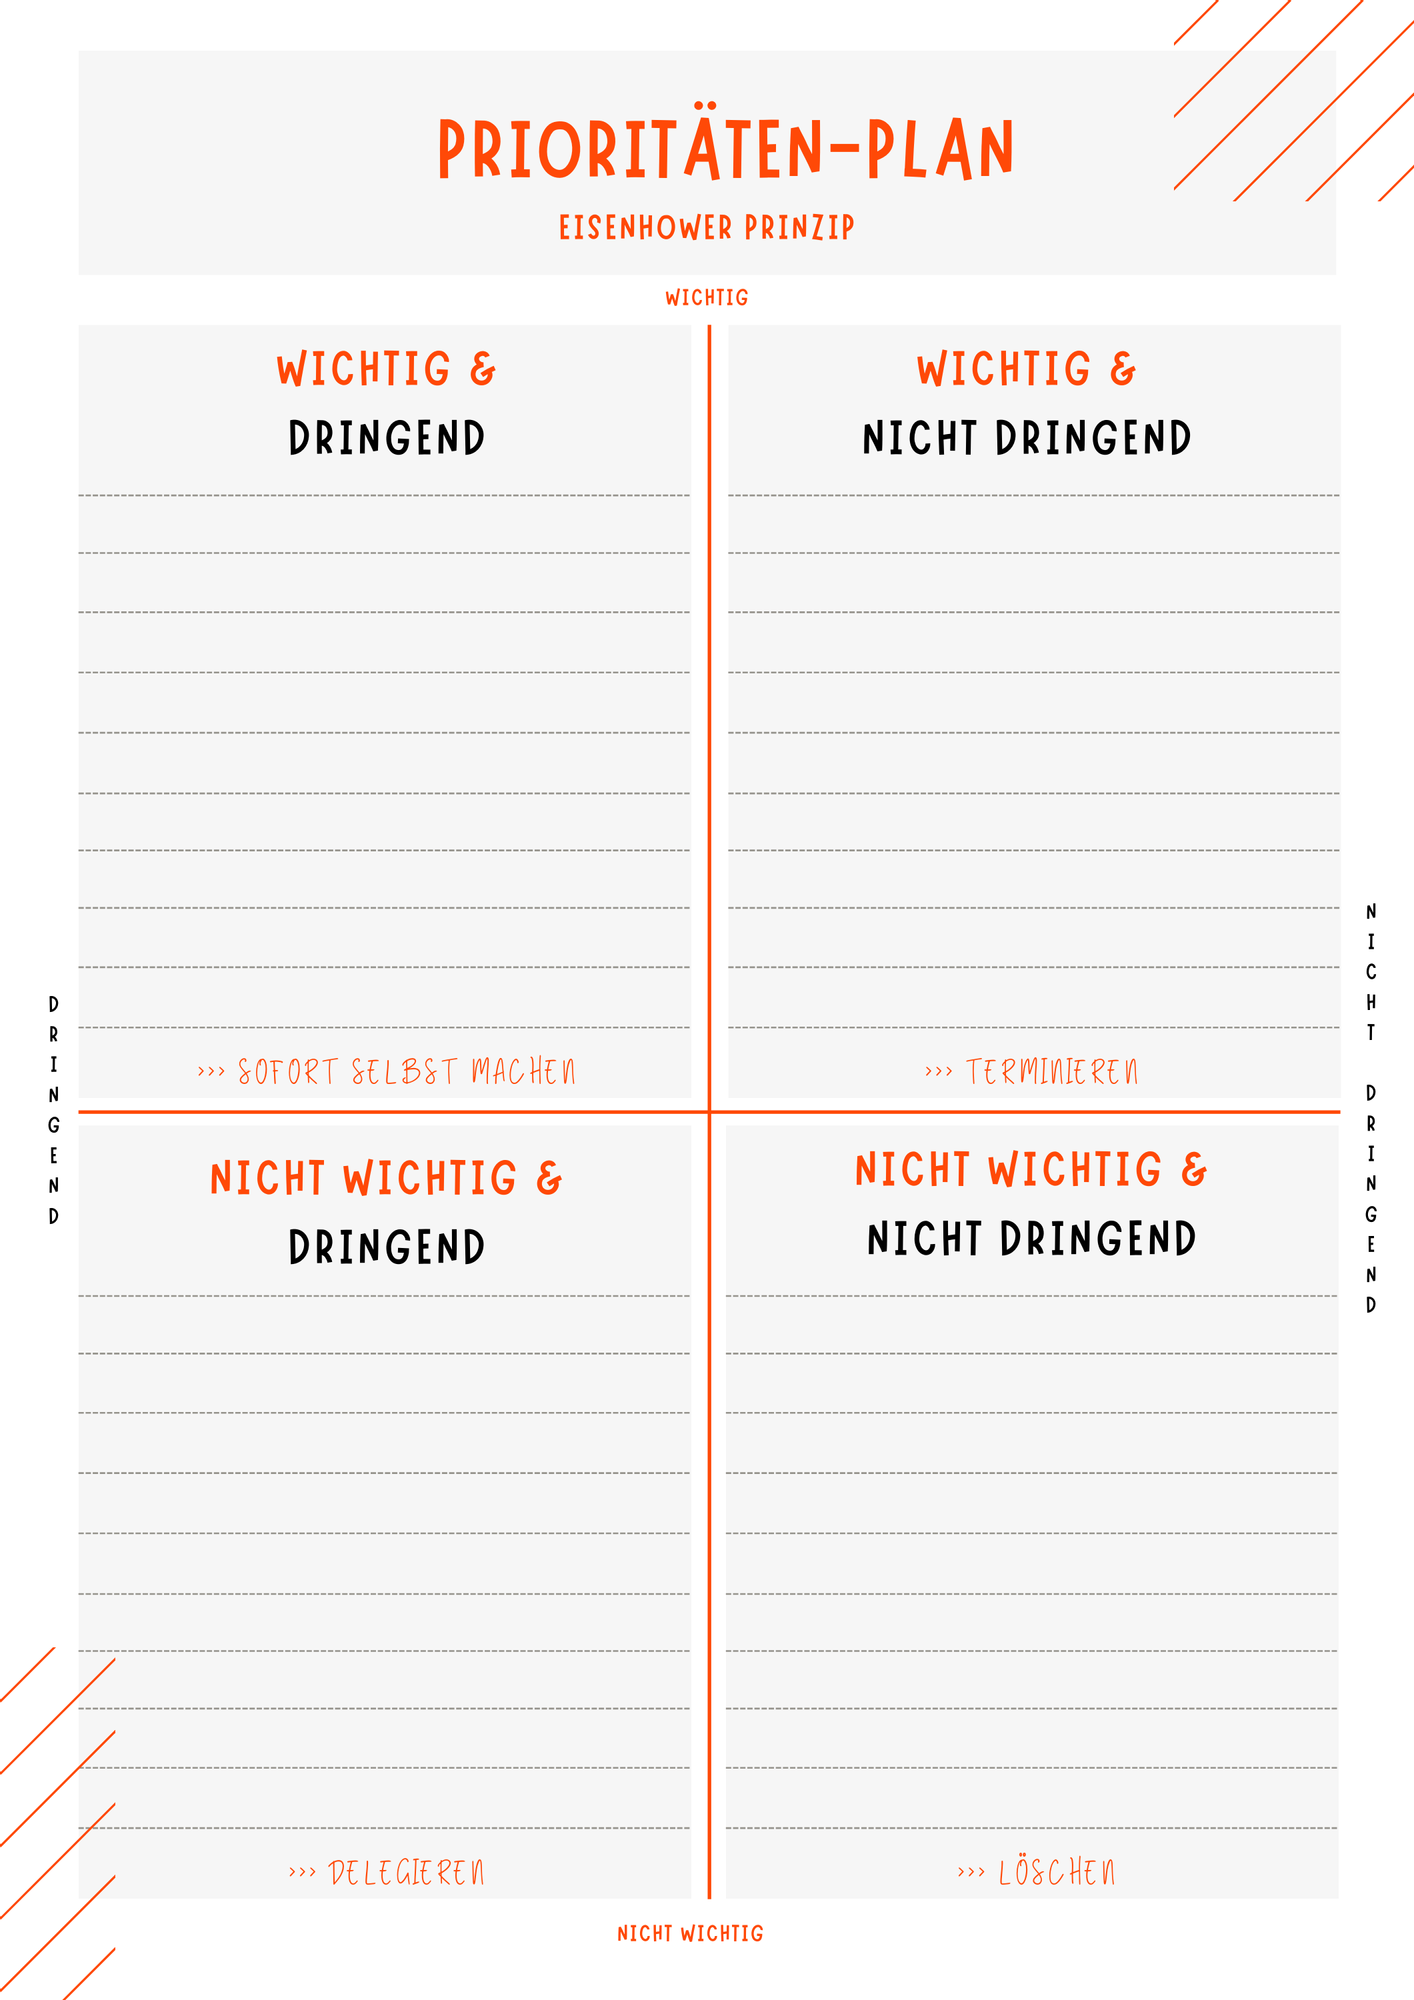 PRIORITÄTEN-PLAN
EISENHOWER PRINZIP
WICHTIG
WICHTIG &
DRINGEND
>>> SOFORT SELBST MACHEN
WICHTIG &
NICHT DRINGEND
>>> TERMINIEREN
DRINGEND
NICHT DRINGEND
NICHT WICHTIG &
DRINGEND
>>> DELEGIEREN
NICHT WICHTIG &
NICHT DRINGEND
>>> LÖSCHEN
NICHT WICHTIG